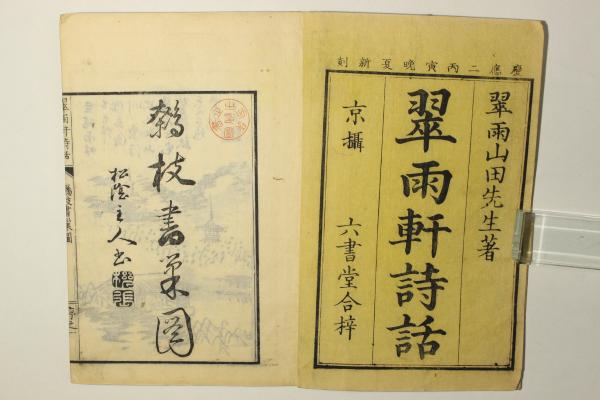 慶應二丙寅晩夏新刻
翠雨山田先生著
翠雨軒詩話
京攝 六書堂合梓
鷦枝書巢圖
松陰主人書
翠雨軒詩話